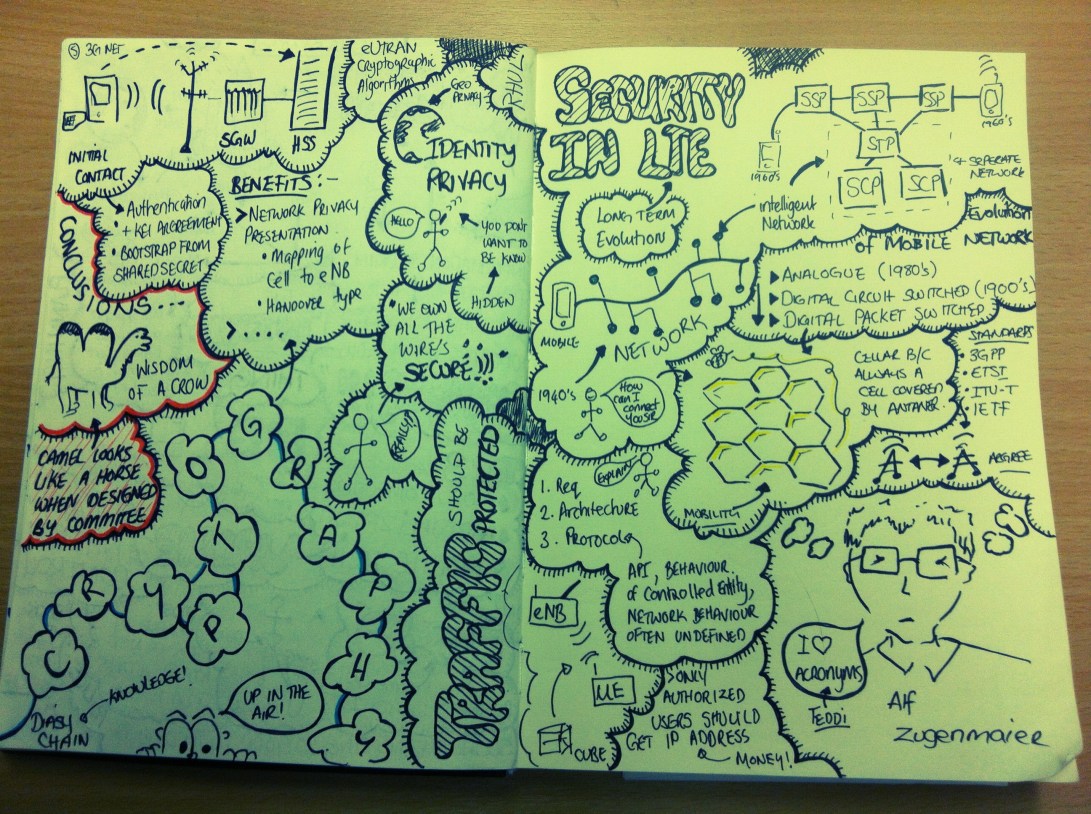 ⑤ 3G NET
SGW
HSS
INITIAL
CONTACT
Authentication
+ KEY AGREEMENT
• BOOTSTRAP FROM
SHARED SECRET
CONCLUSIONS....
WISDOM
OF A CROW
CAMEL LOOKS
LIKE A HORSE
WHEN DESIGNED
BY COMMITEE
BENEFITS:-
> NETWORK PRIVACY
PRESENTATION.
• MAPPING OF
CELL to eNB
• HANDOVER type
> .....
EUTRAN
Cryptographic
Algorithms
GEO
PRIVACY
RHUL
IDENTITY
PRIVACY
HELLO
YOU DON'T
WANT TO
BE KNOW
HIDDEN
"WE OWN
ALL THE
WIRE'S
SECURE!!!
REALLY?
TRAFFIC SHOULD BE
PROTECTED
CRYPTOGRAPHY
DIASY
CHAIN
KNOWLEDGE!
UP IN THE
AIR!
SECURITY
IN LTE
LONG TERM
EVOLUTION
SSP
SSP
SSP
STP
SCP
SCP
1960's
1960's
"4 SEPERATE
NETWORK
intelligent
Network
Evolution
of MOBILE NETWORK
▶ ANALOGUE (1980's)
▶ DIGITAL CIRCUIT SWITCHED (1900's)
▶ DIGITAL PACKET SWITCHED
MOBILE
NETWORK
1940's
HOW
can I
connect
YOO SIR
CELLAR B/C
ALWAYS A
CELL COVERED
BY ANTANER.
STANDARDS
• 3GPP
• ETSI
• ITU-T
• IETF
AGREE
MOBILITY
EXPLAIN
1. Req
2. Architecture
3. Protocols
API, BEHAVIOUR.
of Controlled Entity,
NETWORK BEHAVIOUR
OFTEN UNDEFINED
eNB
UE
CUBE
ONLY
AUTHORIZED
USERS SHOULD
GET IP ADDRESS
MONEY!
I ♡
ACRONYMS
TEDDI
Alf
Zugenmaier